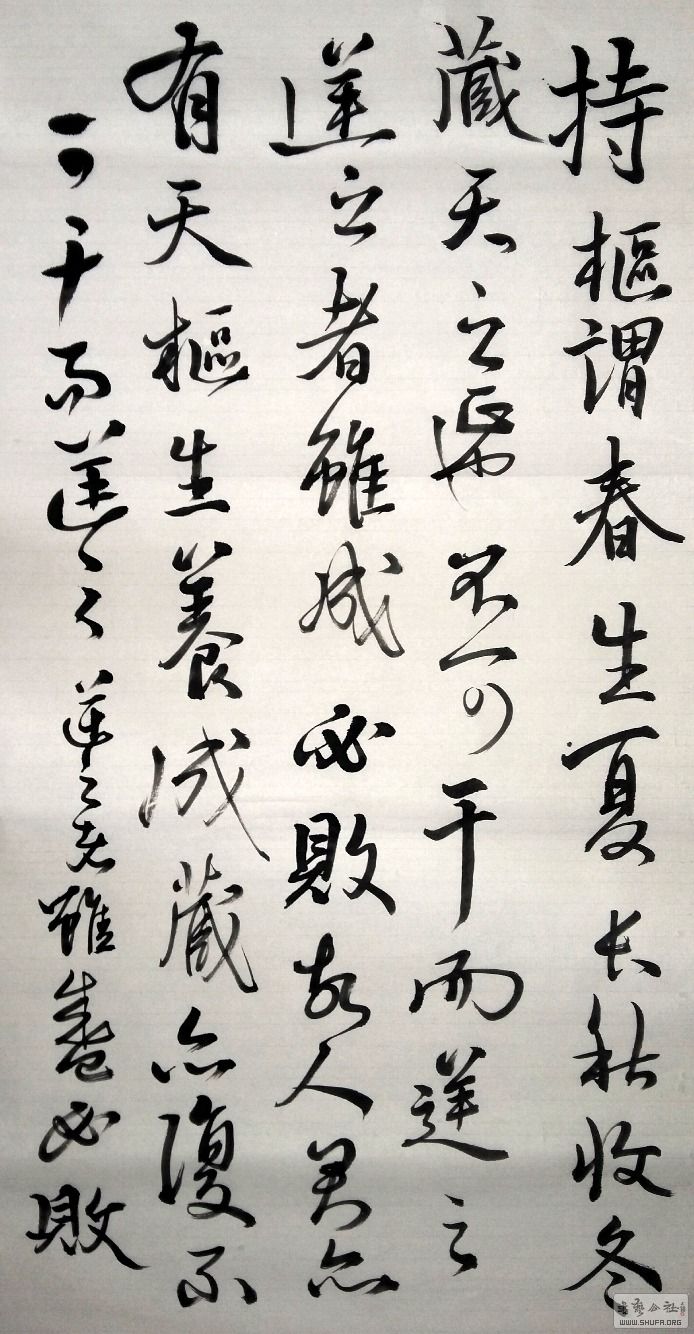 持樞謂春生夏长秋收冬
藏天之正也不可干而逆之
逆之者雖成必敗故人君亦
有天樞生養成藏亦復不
可干而逆之逆之者雖盛必敗
書藝公社
WWW.SHUFA.ORG